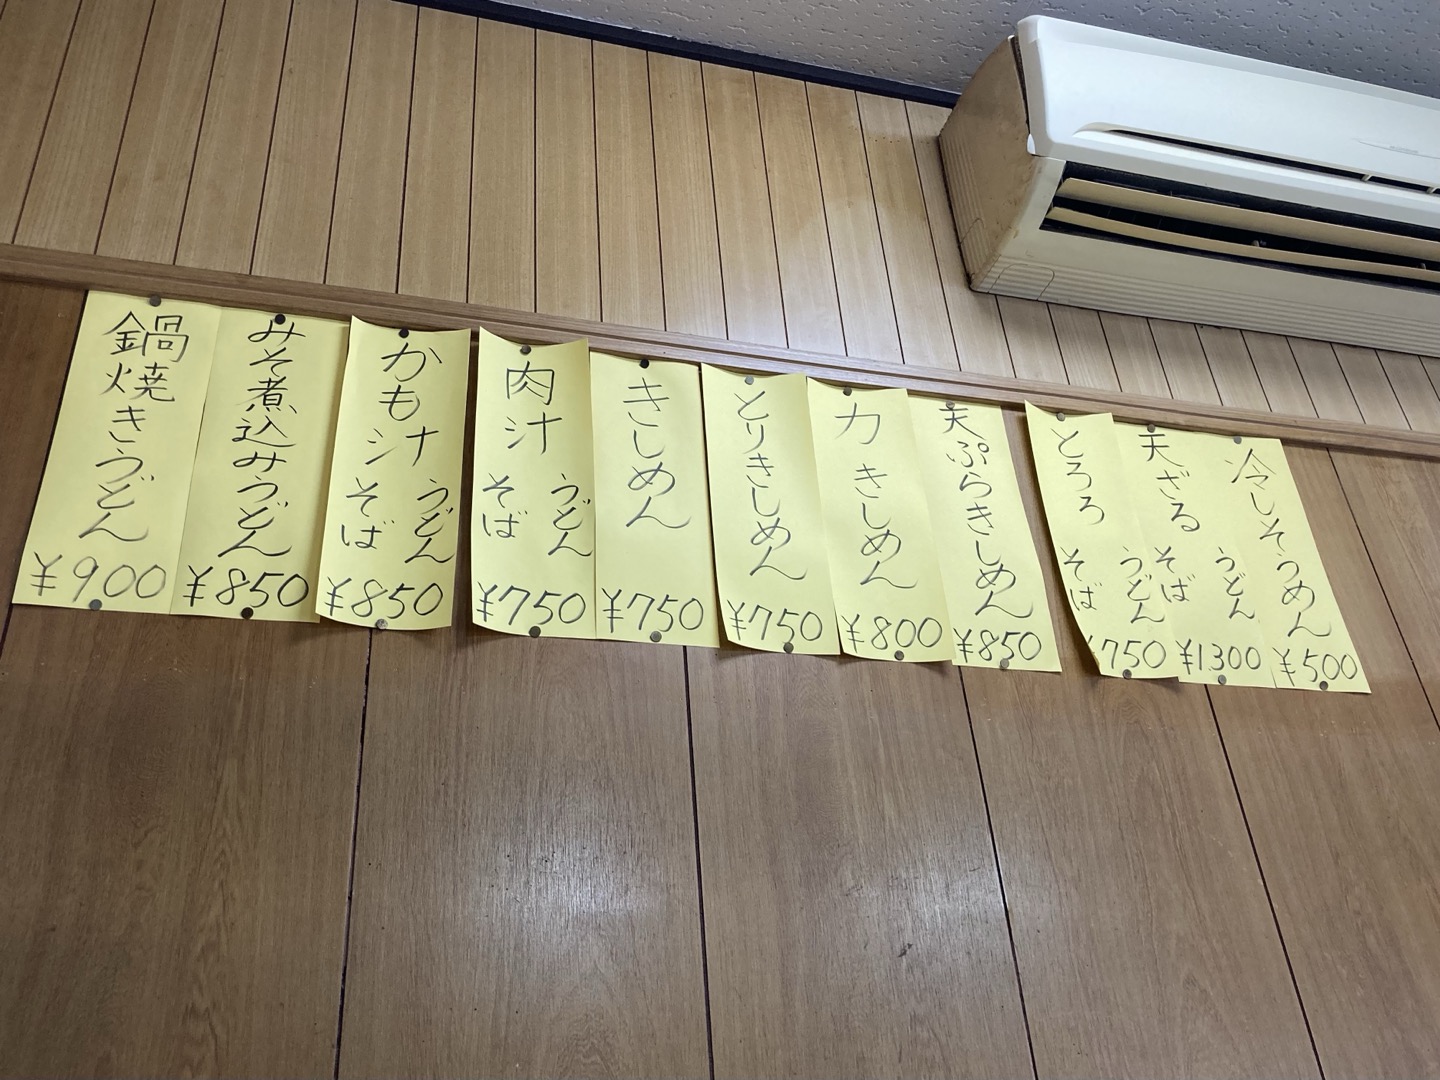 鍋焼きうどん
¥900
みそ煮込みうどん
¥850
かも汁
うどん
そば
¥850
肉汁
うどん
そば
¥750
きしめん
¥750
とりきしめん
¥750
力きしめん
¥800
天ぷらきしめん
¥850
とろろ
うどん
そば
¥750
天ざる
うどん
そば
¥1300
冷しそうめん
¥500